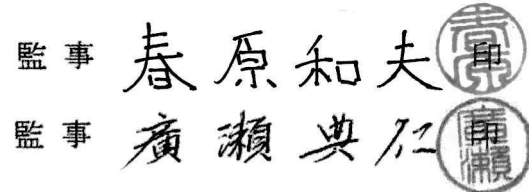 監事 春原和夫 印
監事 廣瀬典仁 印